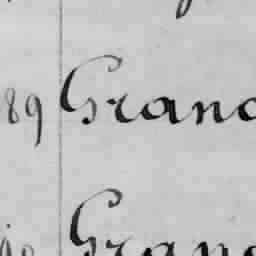 89 Grand
90 Grand